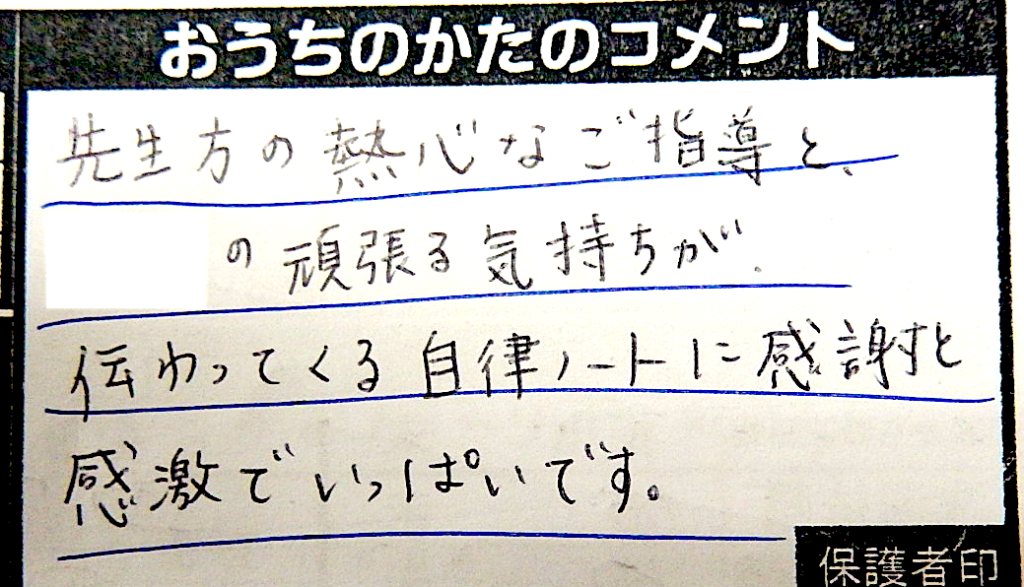 おうちのかたのコメント
先生方の熱心なご指導と、
の頑張る気持ちが、
伝わってくる自律ノートに感謝と
感激でいっぱいです。
保護者印